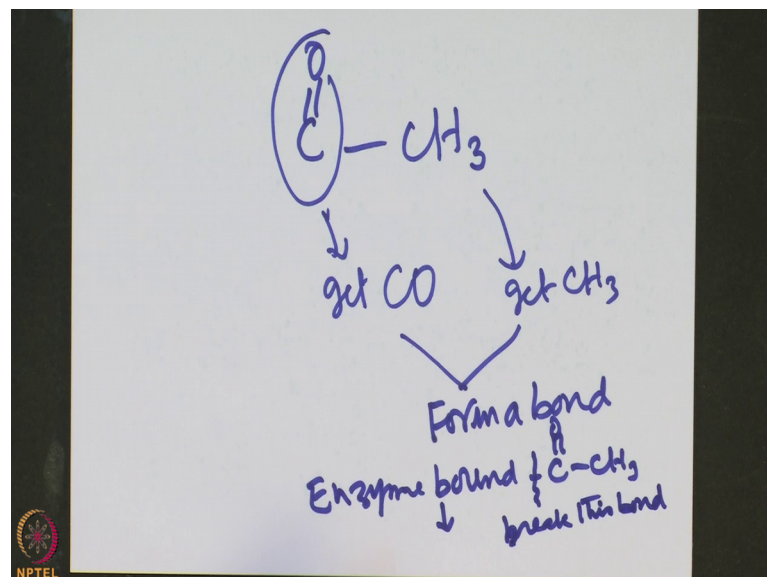 O
||
C — CH3
get CO get CH3
Form a bond
O
||
Enzyme bound C-CH3
break this bond
NPTEL